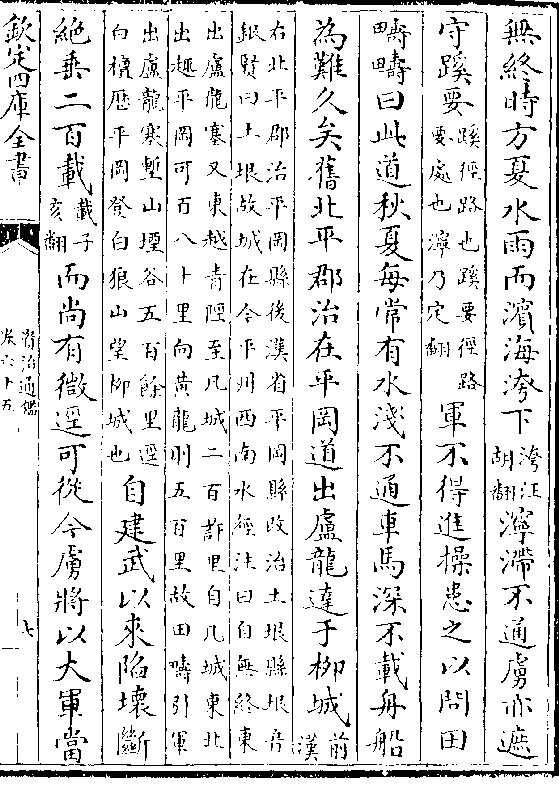 無終時方夏水雨而濱海洿下洿汪胡翻濘滯不通虜亦遮
守蹊要蹊徑路也蹊要徑路要處也濘乃定翻軍不得進操患之以問田
疇疇曰此道秋夏每常有水淺不通車馬深不載舟船
為難久矣舊北平郡治在平岡道出盧龍達于柳城前漢
右北平郡治平岡縣後漢省平岡縣改治土垠縣垠音銀賢曰土垠故城在今平州西南水經注曰自無終東
出盧龍塞又東越青陘至凡城二百許里自凡城東北出趣平岡可百八十里向黃龍則五百里故田疇引軍
出盧龍塞塹山堙谷五百餘里逕白檀歷平岡登白狼山望柳城也自建武以來陷壞斷
絶垂二百載載子亥翻而尚有微逕可從今虜將以大軍當
欽定四庫全書
資治通鑑
卷六十五
七